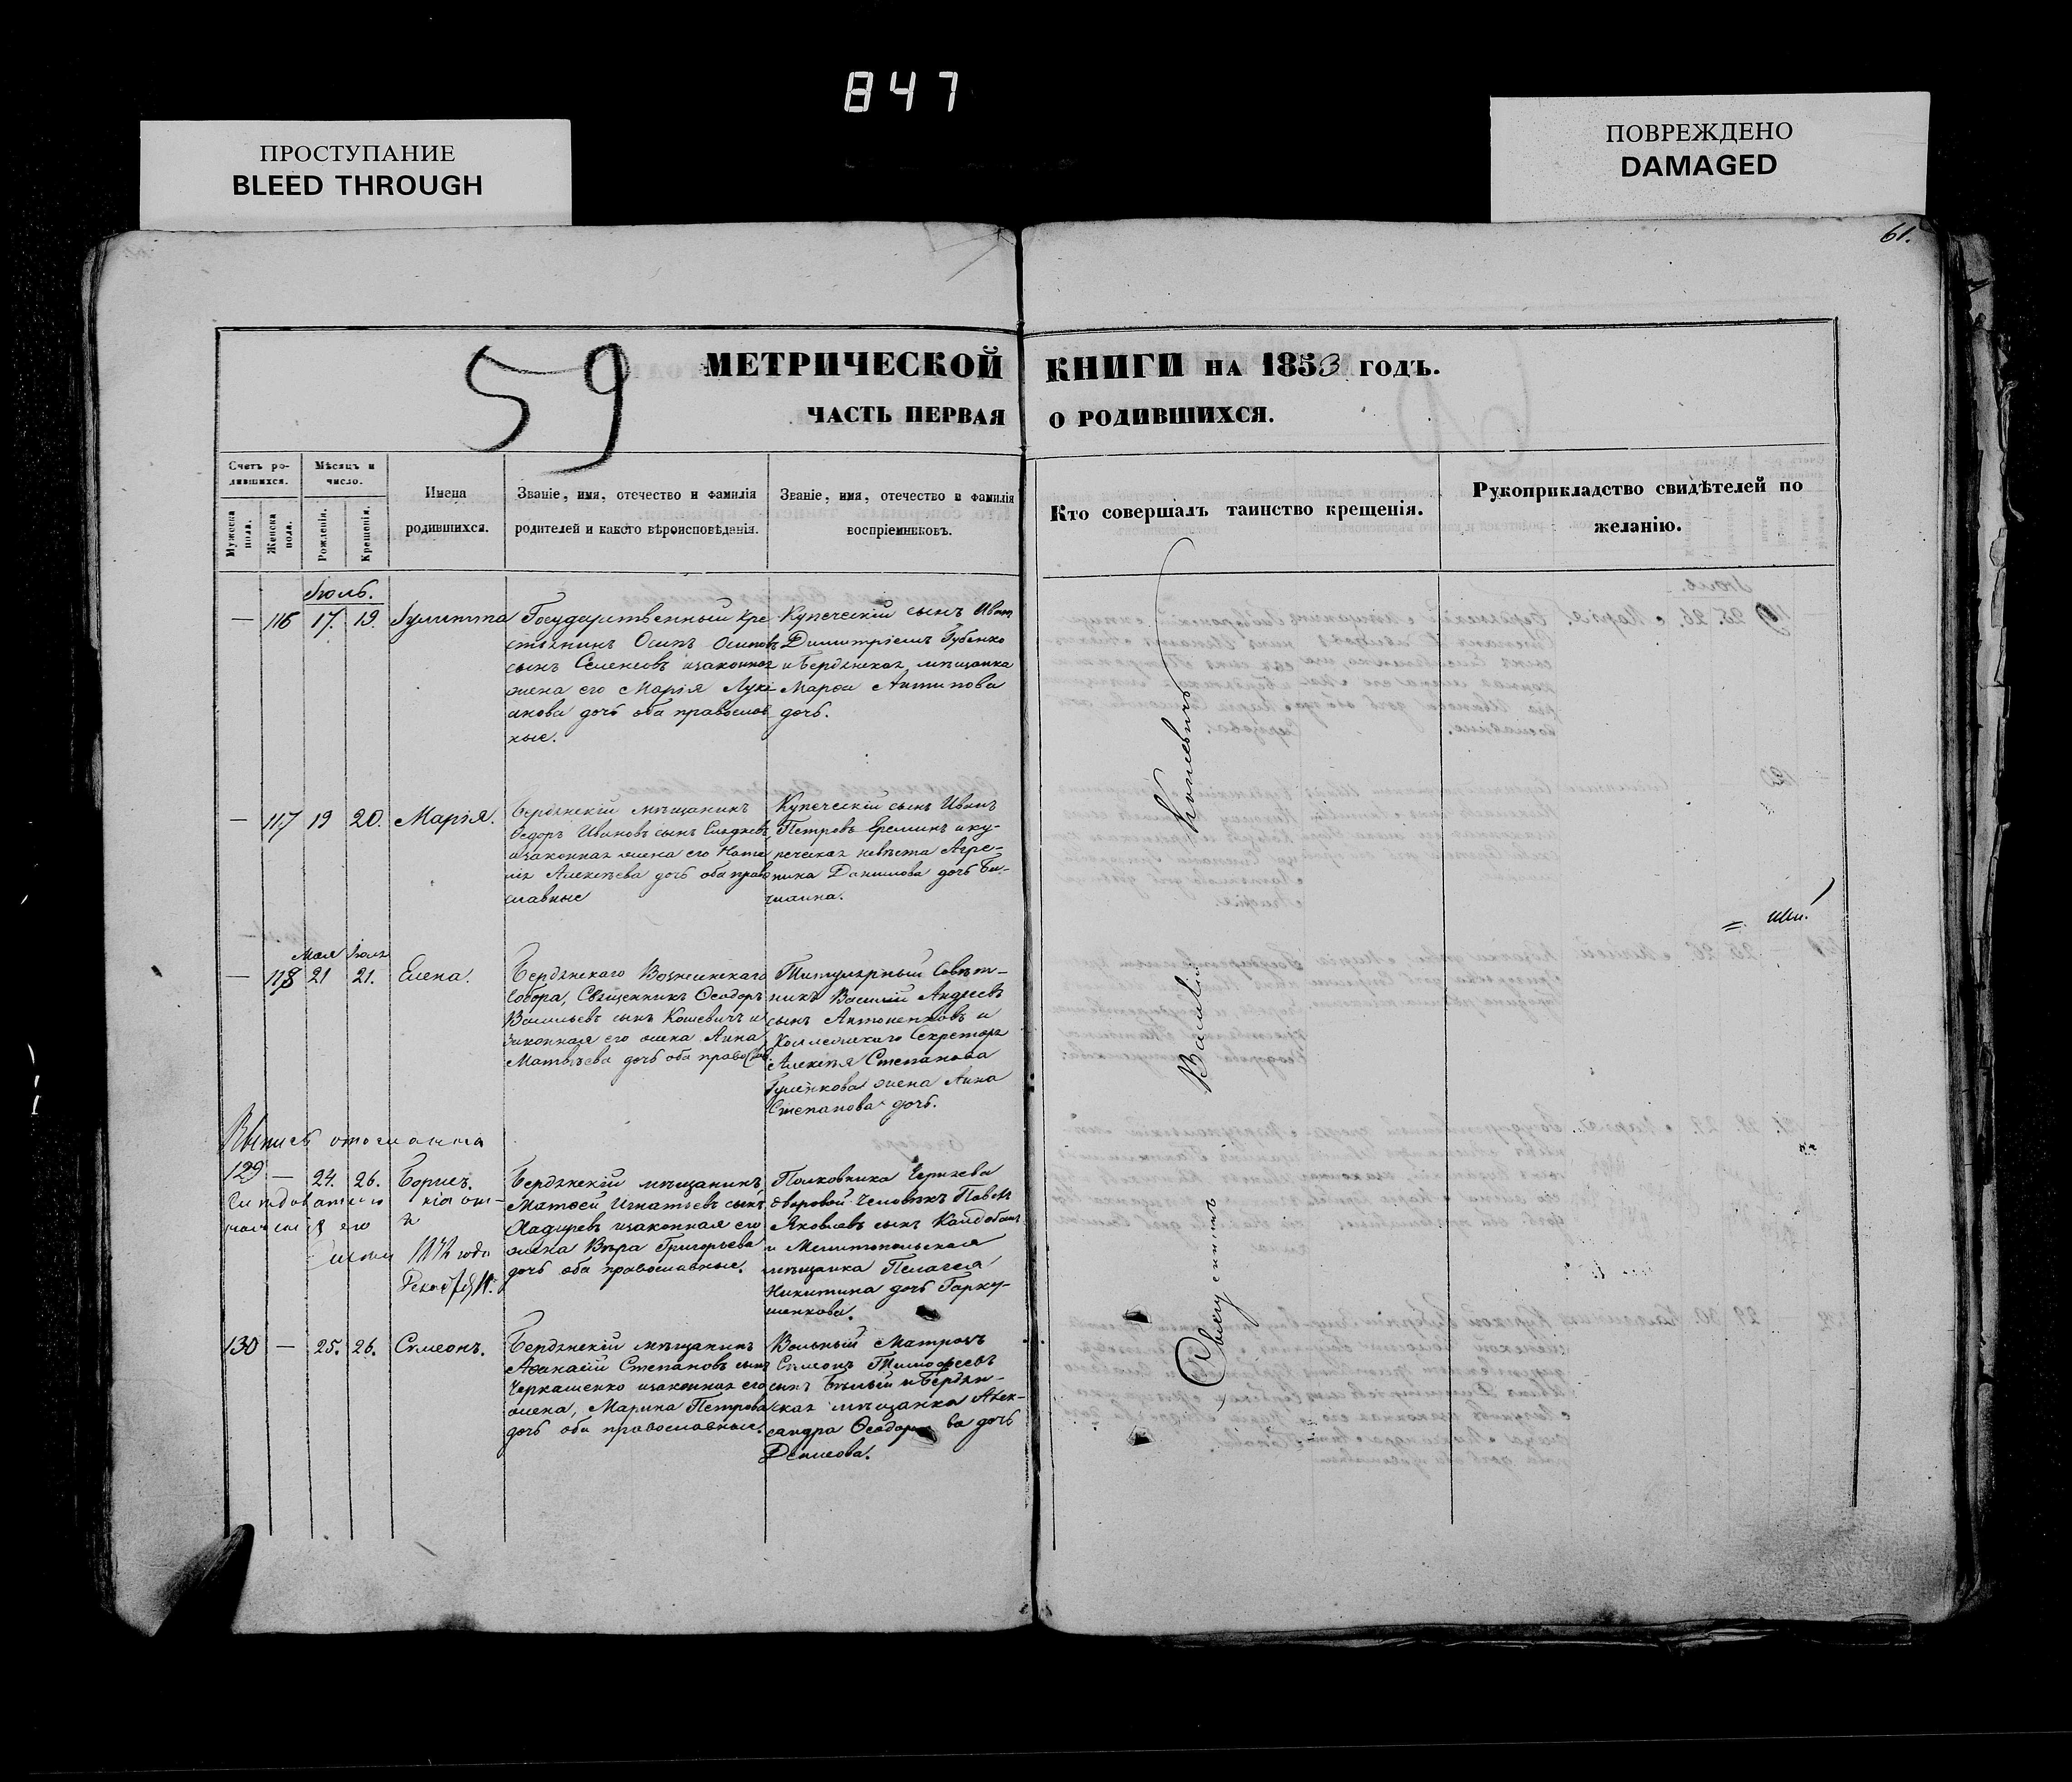 847
ПРОСТУПАНИЕ
BLEED THROUGH
ПОВРЕЖДЕНО
DAMAGED
61.
59
МЕТРИЧЕСКОЙ КНИГИ НА 1853 ГОДЪ.
ЧАСТЬ ПЕРВАЯ О РОДИВШИХСЯ.
Счетъ ро-
дившихся.
Мужеска
пола.
Женска
пола.
Мѣсяцъ и
число.
Рожденія.
Крещенія.
Имена
родившихся.
Званіе, имя, отечество и фамилія
родителей и какого вѣроисповѣданія.
Званіе, имя, отечество и фамилія
воспріемниковъ.
Кто совершалъ таинство крещенія.
Рукоприкладство свидѣтелей по
желанію.
Іюль.
— 116 17. 19. Іулитта
Государственный кре
стьянинъ Осипъ Осиповъ
сынъ изаконная
жена его Марія Луки
анова дочь оба правослов
ные.
Купеческій сынъ Иванъ
Димитріевъ Губенко
и Бердянская мѣщанка
Марфа Антипова
дочь.
— 117 19 20. Марія.
Бердянскій мѣщанинъ
Ѳедоръ Ивановъ сынъ
изаконная жена его Ната
лія Алексѣева дочь оба право
славные
Купеческій сынъ Иванъ
Петровъ Ереминъ и ку-
печеская невѣста Агре-
пина Данилова дочь
Мая Іюля
— 118 21 21. Елена.
Бердянскаго Вознесенскаго
Собора, Священникъ Ѳеодоръ
Васильевъ сынъ Кошевичъ и
законная его жена Анна
Матвѣева дочь оба православ.
Титулярный Совѣт-
никъ Василій Андреевъ
сынъ Антоненковъ и
Коллежскаго Секретаря
Алексѣя Степанова
жена Анна
Степанова дочь.
Выпись отослана
129 — 24. 26. Борисъ.
1872 года
Бердянскій мѣщанинъ
Матѳей Игнатьевъ сынъ
изаконная его
жена Вѣра Григорьева
дочь оба православные.
Полковника
дворовой человѣкъ Павелъ
Яковлевъ сынъ
и Мелитопольская
мѣщанка Пелагея
Никитина дочь Гарку-
шенкова.
130 — 25. 26. Сѵмеонъ.
Бердянскій мѣщанинъ
Аѳанасій Степановъ сынъ
Черкашенко изаконная его
жена, Марина Петрова
дочь оба православные.
Вольный Матросъ
Сѵмеонъ Тимоѳеевъ
сынъ Бѣлый и Бердян-
ская мѣщанка Алек-
сандра Ѳеодорова дочь
Денисова.
Священникъ Василій